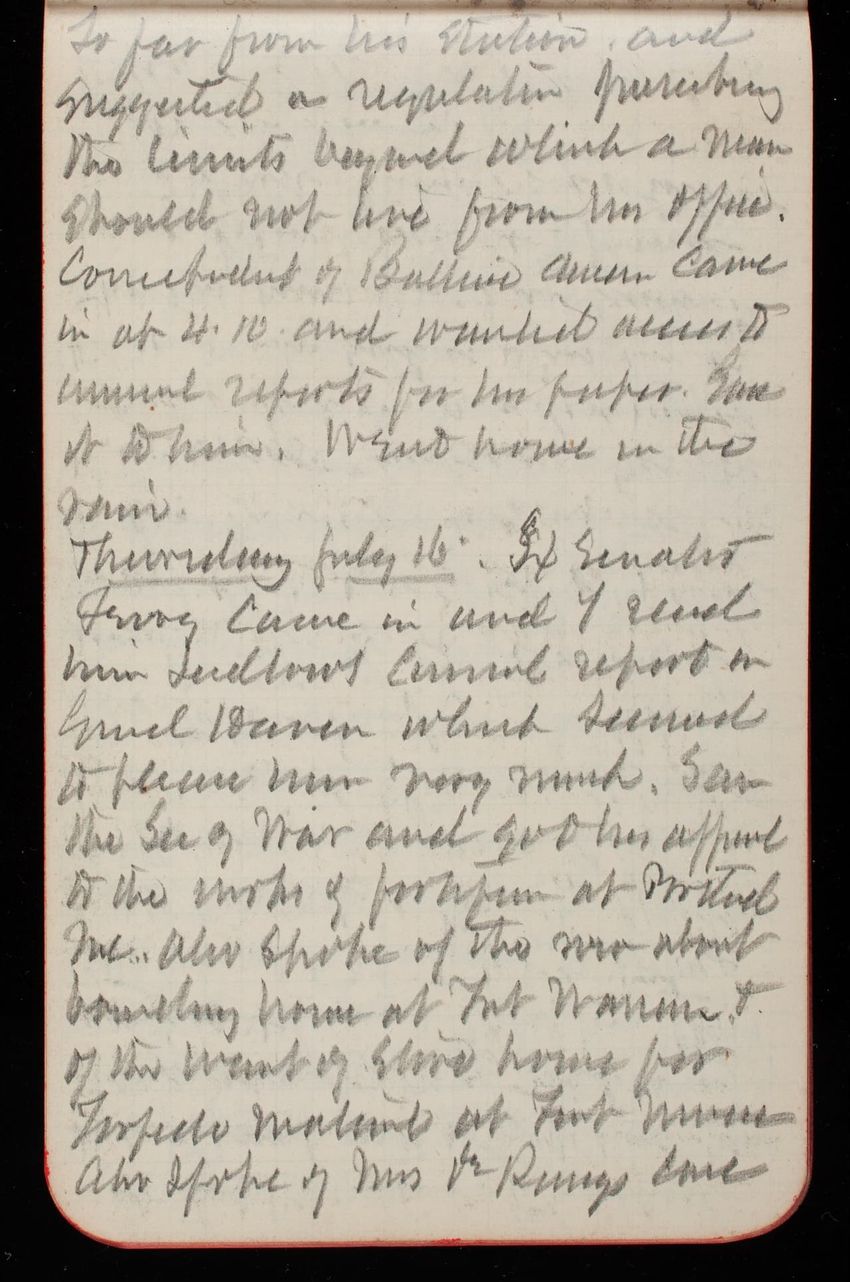 So far from his station, and
suggested a regulation prescribing
the limits beyond which a man
should not live from his office.
Correspondent of Baltimore American came
in at 4.10 and wanted access to
annual reports for his paper. Gave
it to him. Went home in the
rain.
Thursday July 16. Ex Senator
Ferry came in and I read
him Ludlows annual report on
Grand Haven which seemed
to please him very much. Saw
the Sec of War and got his approval
to the works of fortification at Portland
Me. Also spoke of the row about
boarding house at Fort Warren. &
of the want of store house for
Torpedo material at Fort Monroe
Also spoke of Mrs Dr case